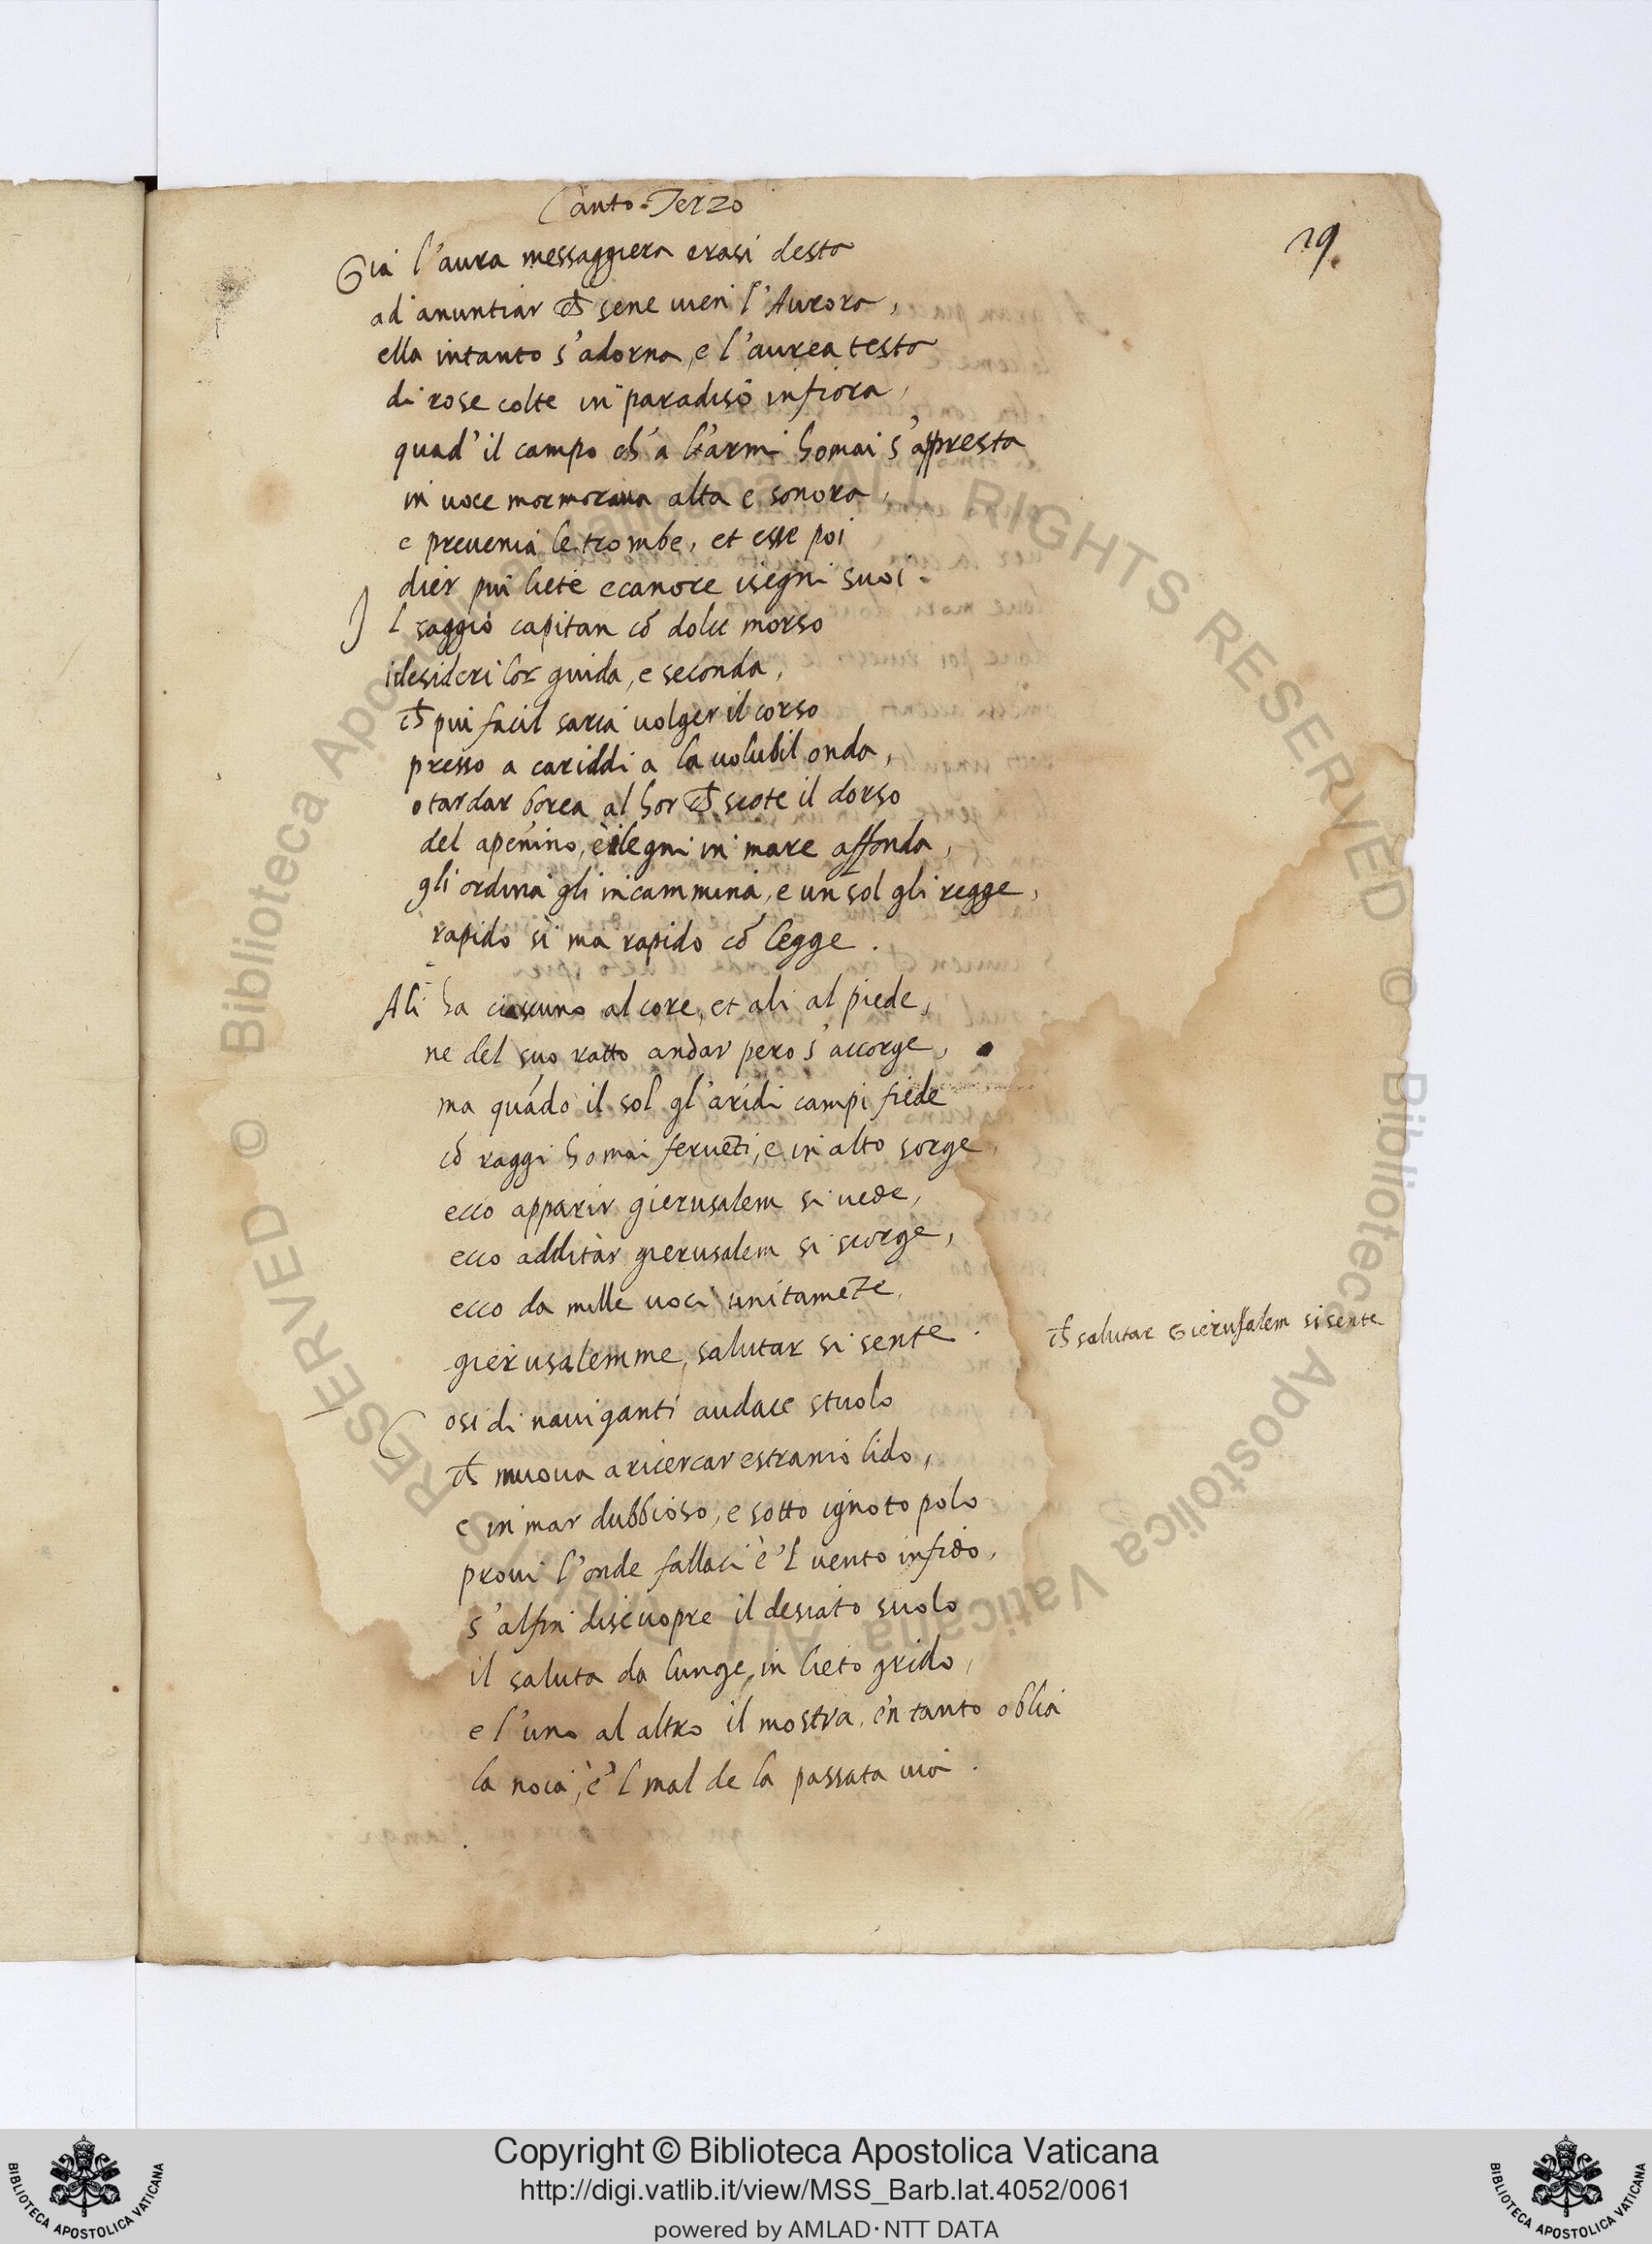 Canto Terzo
29.
Gia l'aura messaggiera erasi desta
ad anuntiar ch̄ sene vien l'Aurora,
ella intanto s'adorna, e l'aurea testa
di rose colte in paradiso infiora,
quad'il campo ch'a l'armi homai s'appresta
in voce mormorava alta e sonora,
e prevenia le trombe, et esse poi
dier piu liete e canore i segni suoi.
Il saggio capitan cō dolce morso
i desideri lor guida, e seconda,
ch̄ piu facil saria volger il corso
presso a cariddi a la volubil onda,
o tardar borea al hor ch̄ scote il dorso
del apēnino, e i legni in mare affonda,
gli ordina gli incammina, e un sol gli regge,
rapido si ma rapido cō legge.
Ali ha ciascuno al core, et ali al piede,
ne del suo ratto andar pero s'accorge,
ma quādo il sol gl'aridi campi fiede
cō raggi homai fervēti, e in alto sorge,
ecco apparir gierusalem si vede,
ecco additar gierusalem si scorge,
ecco da mille voci unitamēte,
gierusalemme, salutar si sente.
ch̄ salutar Gierussalem si sente
Cosi di naviganti audace stuolo
ch̄ muova a ricercar estranio lido,
e in mar dubbioso, e sotto ignoto polo
provi l'onde fallaci e'l vento infido,
s'alfin discuopre il desiato suolo
il saluta da lunge, in lieto grido,
e l'uno al altro il mostra, e'n tanto oblia
la noia, e'l mal de la passata via.
Biblioteca Apostolica Vaticana ALL RIGHTS RESERVED © Biblioteca Apostolica Vaticana ALL RIGHTS RESERVED ©
BIBLIOTECA APOSTOLICA VATICANA
Copyright © Biblioteca Apostolica Vaticana
http://digi.vatlib.it/view/MSS_Barb.lat.4052/0061
powered by AMLAD·NTT DATA
BIBLIOTECA APOSTOLICA VATICANA